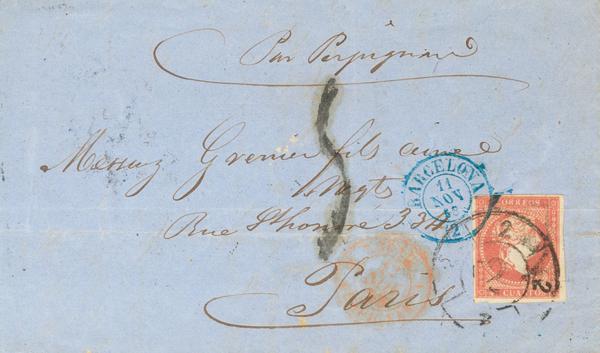 Par Perpignan
Messrs Grenier fils ainé
Negts
Rue St honoré 334
Paris
BARCELONA
11
NOV
CORREOS
CUARTOS